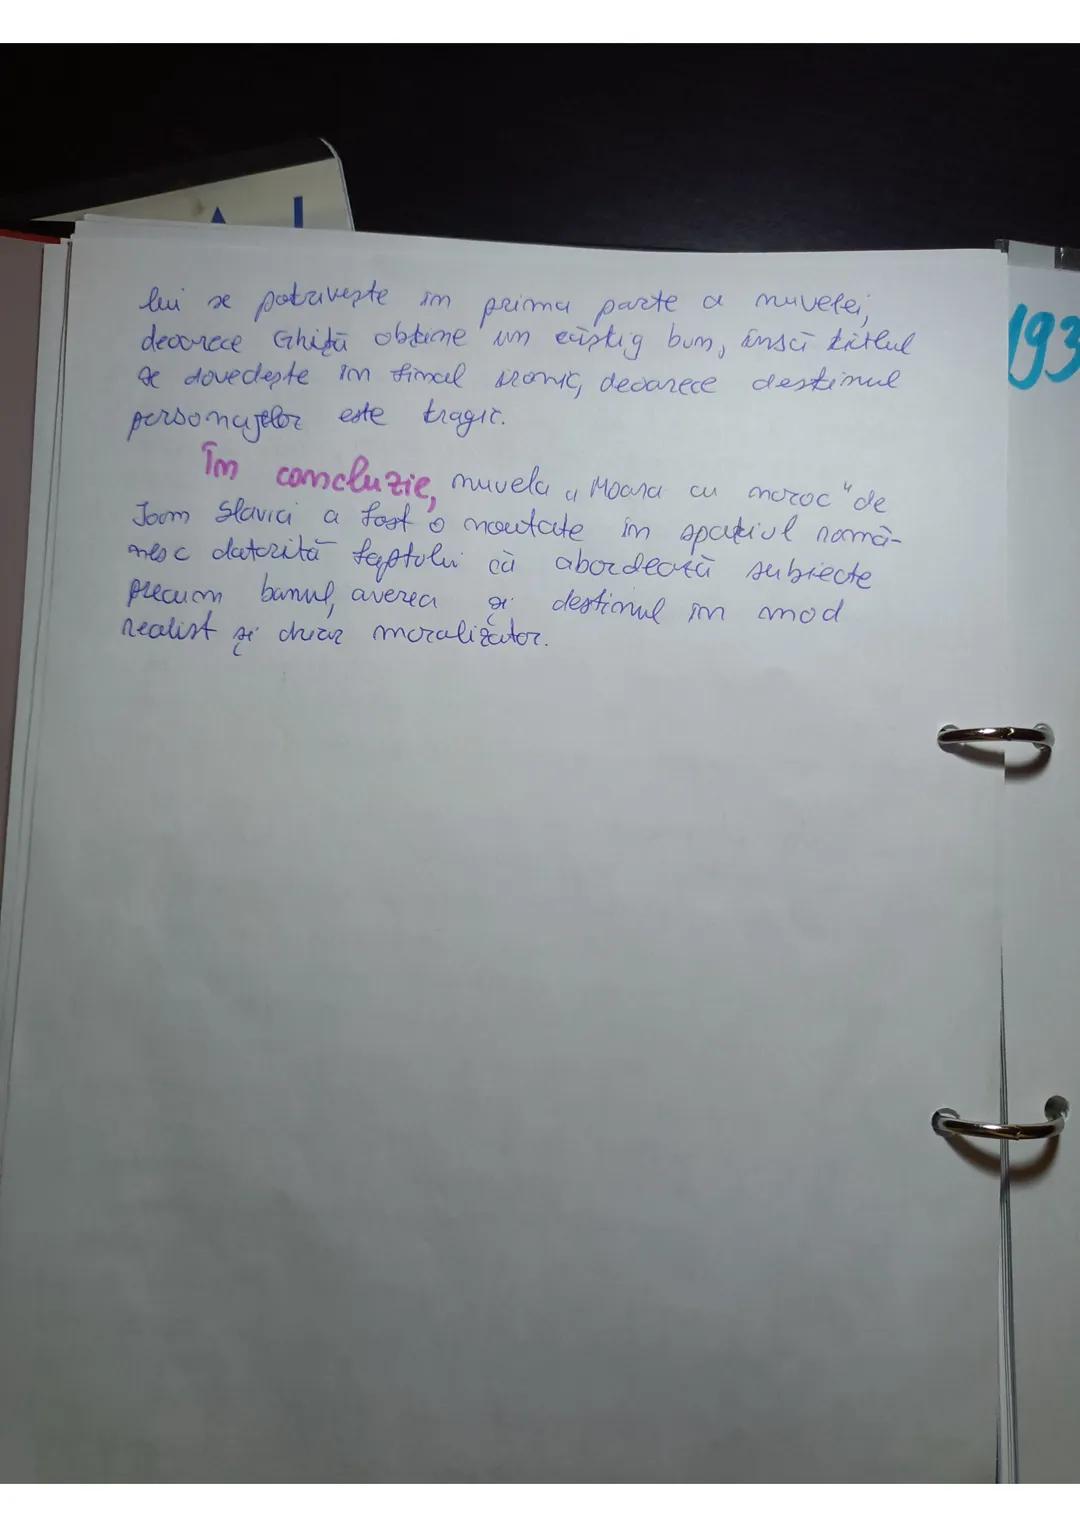 lui se potrivește în prima parte a nuvelei,
deoarece Ghiță obține un câștig bun, însă titlul
se dovedește în final ironic, deoarece destinul
personajelor este tragic.
În concluzie, nuvela „Moara cu noroc" de
Ioan Slavici a fost o noutate în spațiul româ-
nesc datorită faptului că abordează subiecte
precum banul, averea și destinul în mod
realist și chiar moralizator.
193